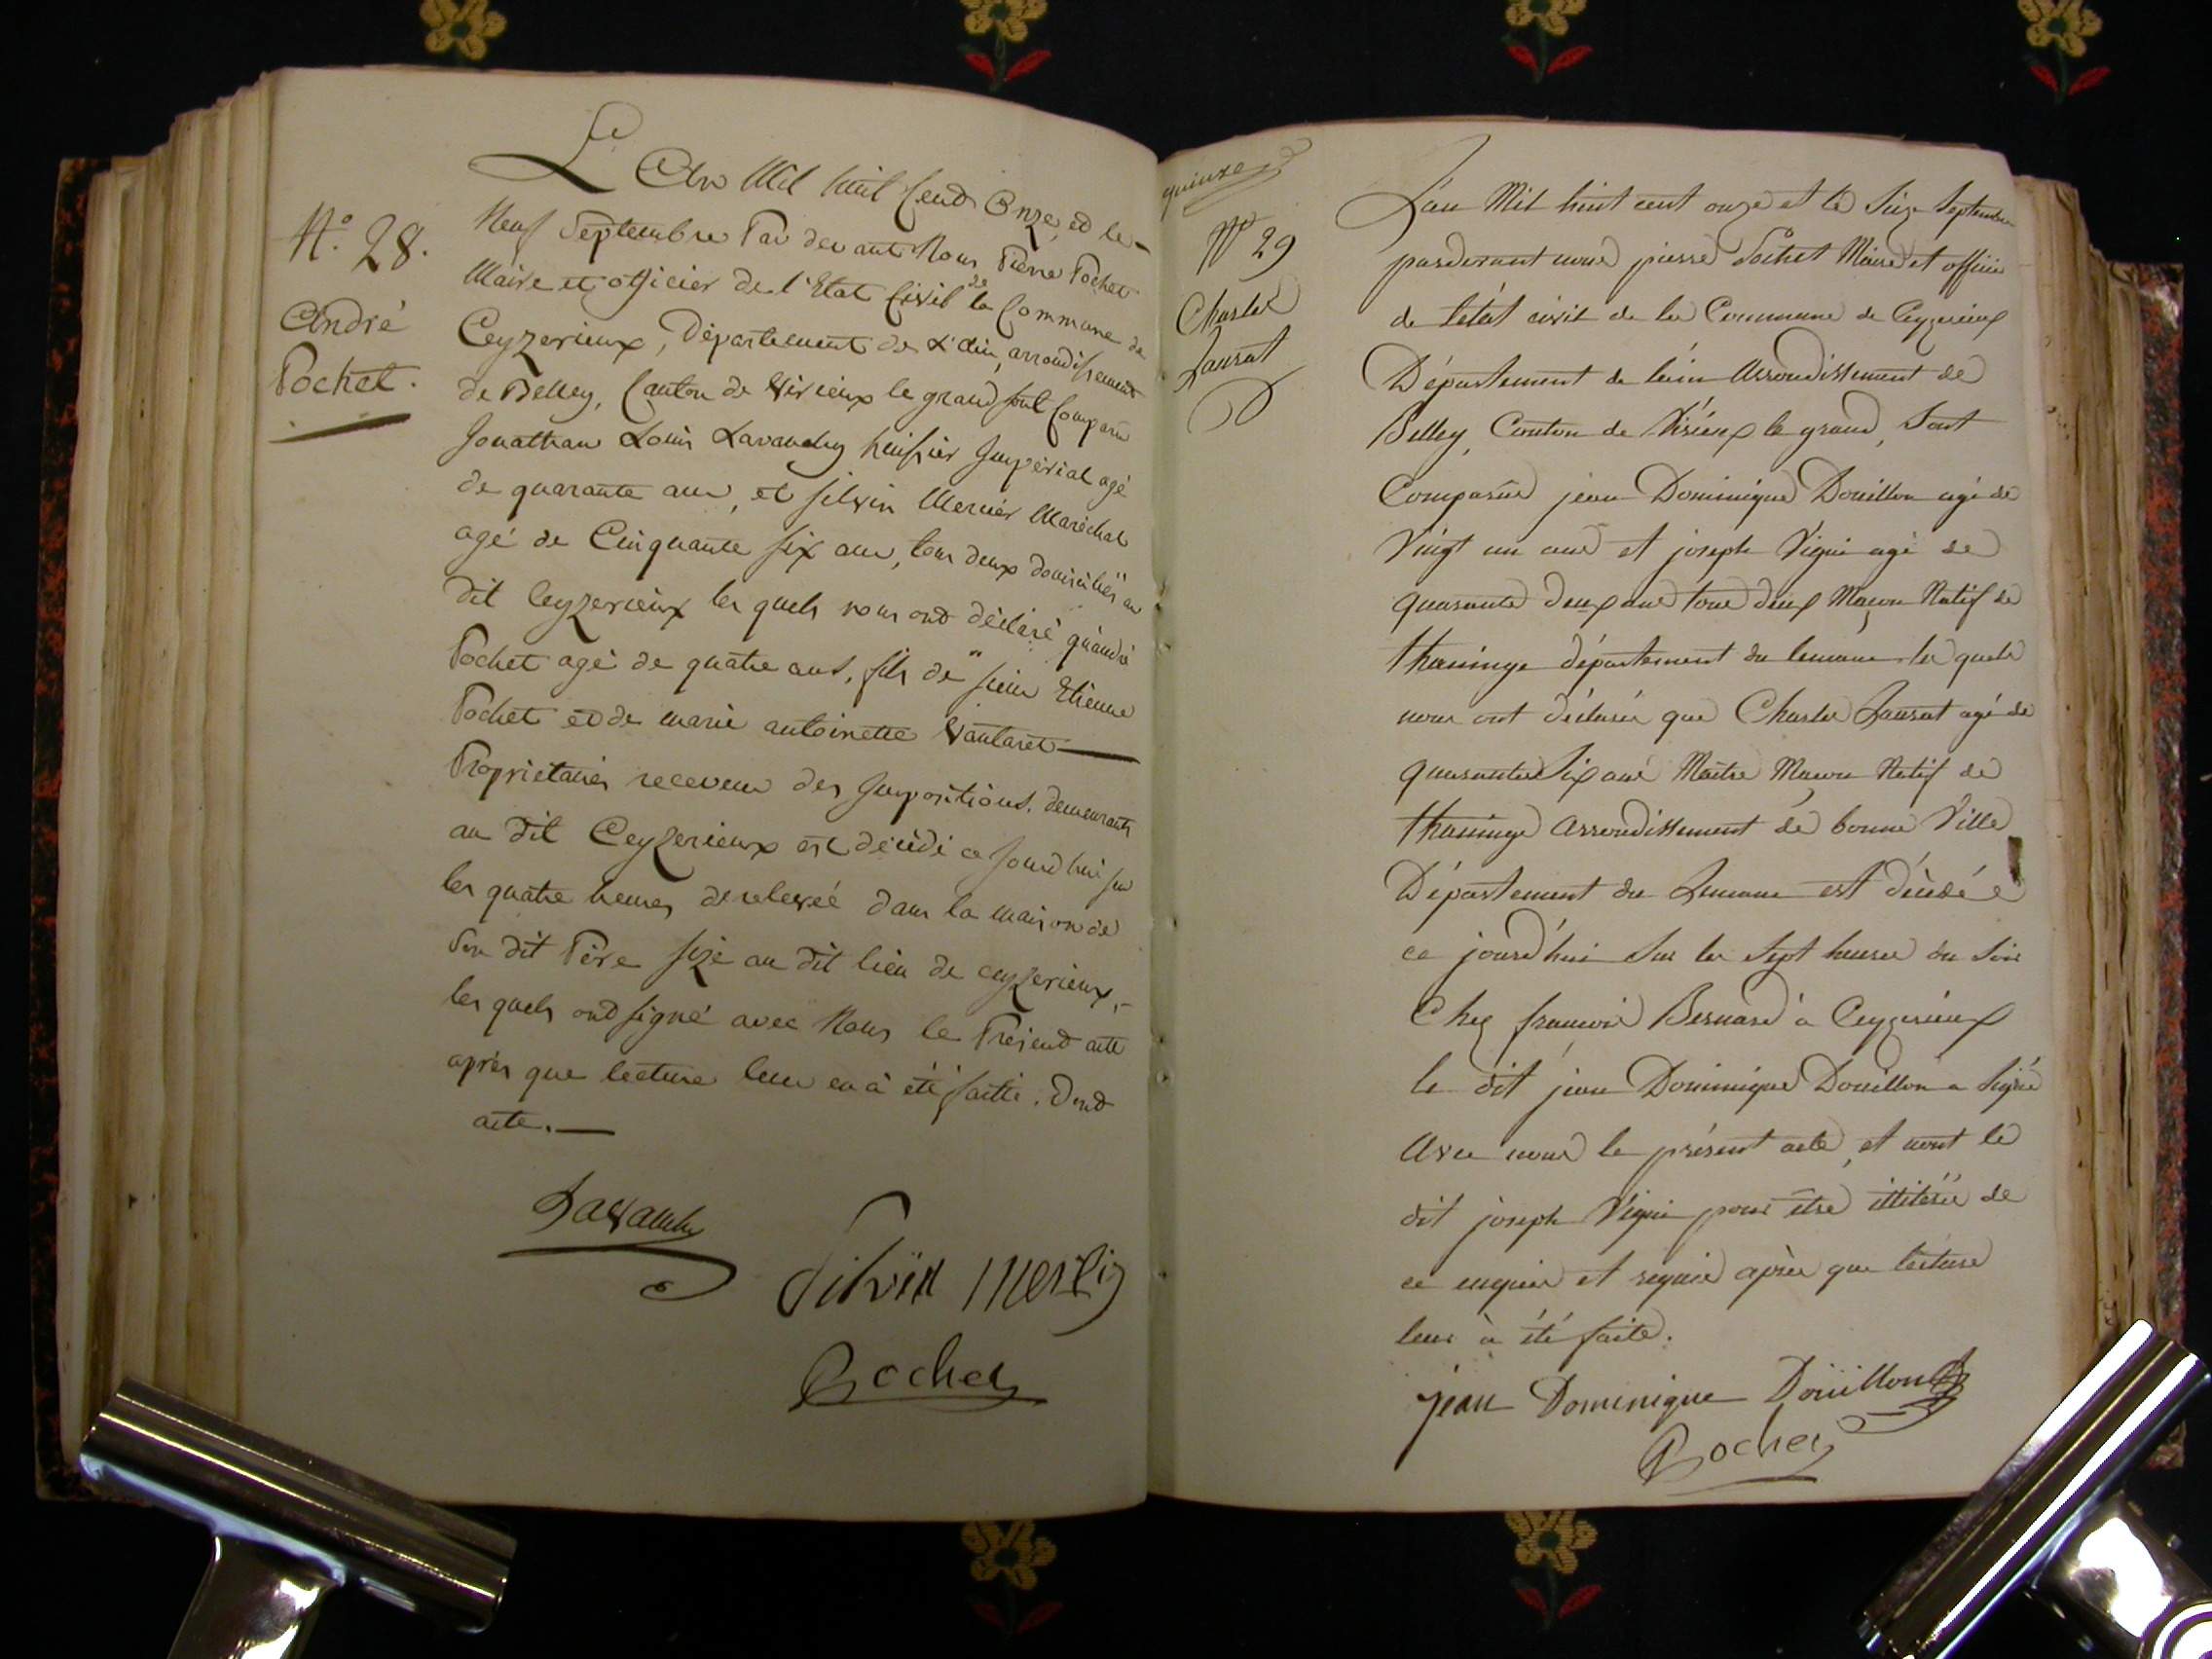 N.° 28.
André
Pochet.
L'An Mil huit Cent Onze, et le
Neuf Septembre Par devant Nous Pierre Pochet
Maire et officier de l'Etat Civil de la Commune de
Ceyzerieux, Département de L'ain, arrondissement
de Belley, Canton de Virieux le grand sont Comparu
Jonathan Louis Lavanchy huissier Imperial agé
de quarante ans, et Silvin Mercier Maréchal
agé de Cinquante six ans, tous deux domiciliés au
dit Ceyzerieux les quels nous ont déclaré qu'andré
Pochet agé de quatre ans, fils de sieur Etienne
Pochet et de marie antoinette Vantaret
Propriétaires receveur des Impositions. demeurants
au dit Ceyzerieux est décédé ce jourd'hui sur
les quatre heures de relevée dans la maison de
son dit Père size au dit lieu de ceyzerieux,
les quels ont signé avec Nous le Présent acte
après que lecture leur en à été faitte. Dont
acte.
Silvin
Pochet
quinze
N° 29
Charles
Jaurat
L'an Mil huit cent onze et le Seize Septembre
pardevant nous pierre Pochet Maire et officier
de l'état civil de la Commune de Ceyzerieux
Département de l'ain Arrondissement de
Belley, Canton de Virieux le grand, Sont
Comparûs jean Dominique Douillon agé de
Vingt un ans et joseph Vigni agé de
quarante deux ans tous deux Maçon Natif de
thaninge département du leman les quels
nous ont déclarés que Charles Jaurat agé de
quarante Six ans Maitre Maçon Natif de
thaninge Arrondissement dé bonne Ville
Département du Leman est décédé
ce jourd'hui Sur les Sept heures du Soir
Chez françois Bernard à Ceyzerieux
le dit jean Dominique Douillon a Signé
Avec nous le présent acte, et nont le
dit joseph Vigni pour être illiterée de
ce enquis et requis après que lecture
leur à été faite.
jean Dominique Doüillon
Pochet